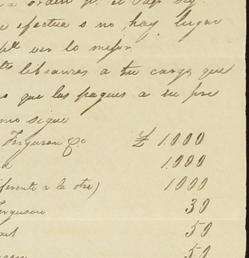 orden p. el pago
se efectua o no hay lugar
ver lo mejor
libranzas a tu cargo, que
que las pagues a su pre
mo sigue
Ferguson & Co £ 1.000
a 1.000
(diferente a la otra) 1000
Ferguson 30
50
50